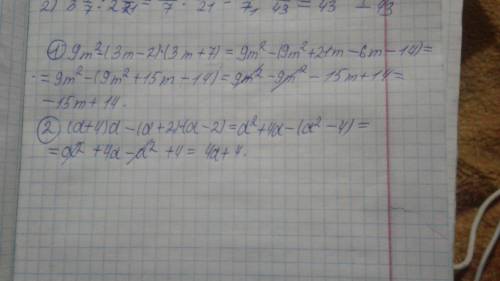 ① 9m²-(3m-2)·(3m+7)=9m²-(9m²+21m-6m-14)=
=9m²-(9m²+15m-14)=9m²-9m²-15m+14=
-15m+14.
② (a+4)a-(a+2)·(a-2)=a²+4a-(a²-4)=
=a²+4a-a²+4=4a+4.